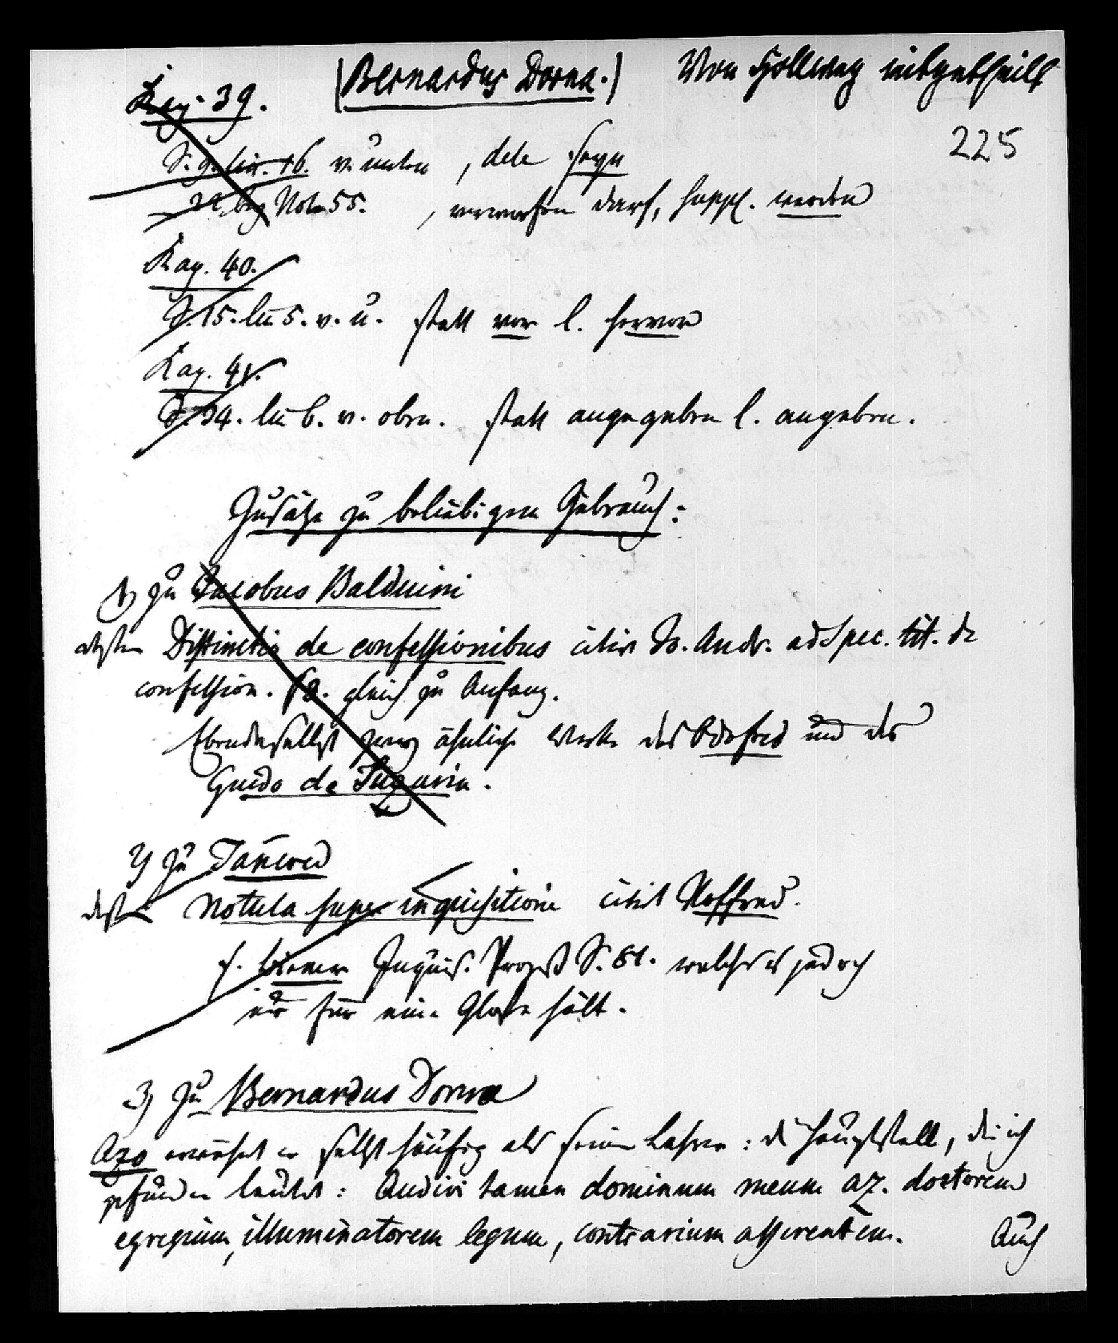 (Bernardus Dorna.) Von Hollweg mitgetheilt
Kap. 39.
225
S. 9. lin. 16. v. unten, dele seyn
— 22. Not. 55. , verwerfen darf, suppl. werden
Kap. 40.
S. 15. lin 5. v. u. statt vor l. hervor
Kap. 41.
S. 34. lin 6. v. oben. statt angegeben l. angeben.
Zusätze zu beliebigem Gebrauch:
1) zu Jacobus Balduini
dessen Distinctio de confessionibus citirt Jo. Andr. ad Spec. tit. de
confession. §8. gleich zu Anfang.
Ebendaselbst zwei ähnliche Werke des Odofred und des
Guido de Suzaria.
2) zu Tancred
dessen Nottula super inquisitione citirt Roffred.
s. Biener Inquis. Prozeß S. 61. welcher es jedoch
nur für eine Glosse hält.
3) zu Bernardus Dorna
Azo erwähnt er selbst häufig als seinen Lehrer: die Hauptstelle, die ich
gefunden lautet: Audivi tamen dominum meum az. doctorem
egregium, illuminatorem legum, contrarium asserentem. Auch